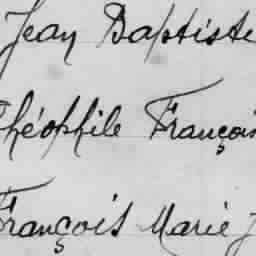 Jean Baptiste
Théophile François
François Marie J